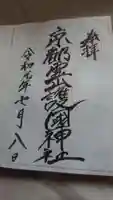 奉拝
京都霊山護国神社
令和元年七月八日